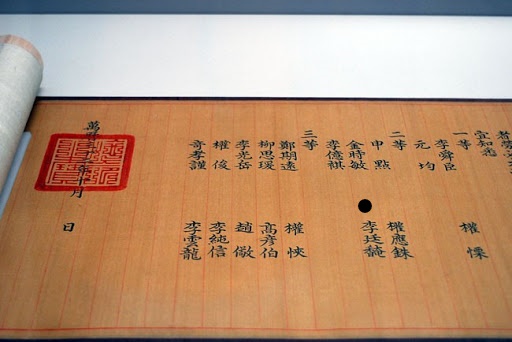 宜知悉
一等 權慄
李舜臣
元均
二等 權應銖
申點 李廷馣
金時敏
李億祺
三等
鄭期遠 權悏
柳思瑗 高彦伯
李光岳 趙儆
權俊 李純信
奇孝謹 李雲龍
萬曆三十二年十月 日